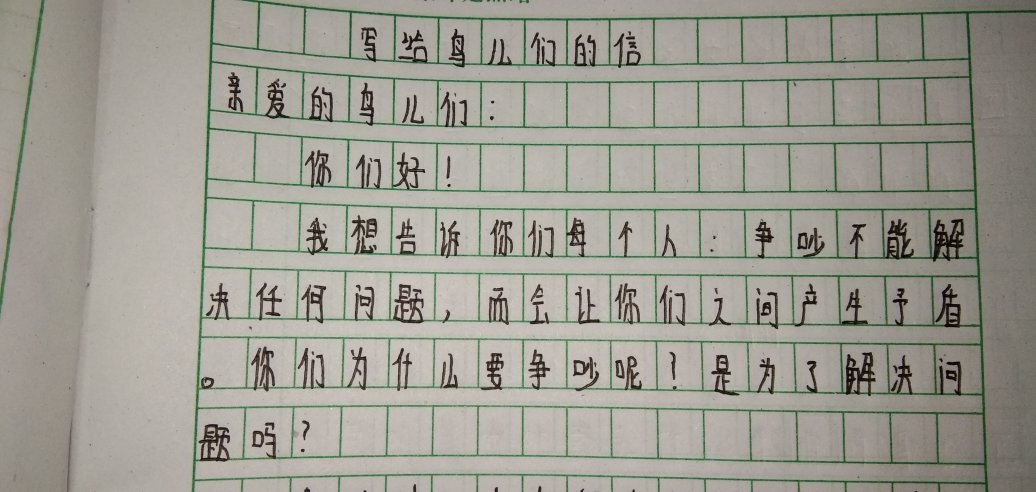 写给鸟儿们的信
亲爱的鸟儿们：
你们好！
我想告诉你们每个人：争吵不能解
决任何问题，而会让你们之间产生予盾
。你们为什么要争吵呢？是为了解决问
题吗？